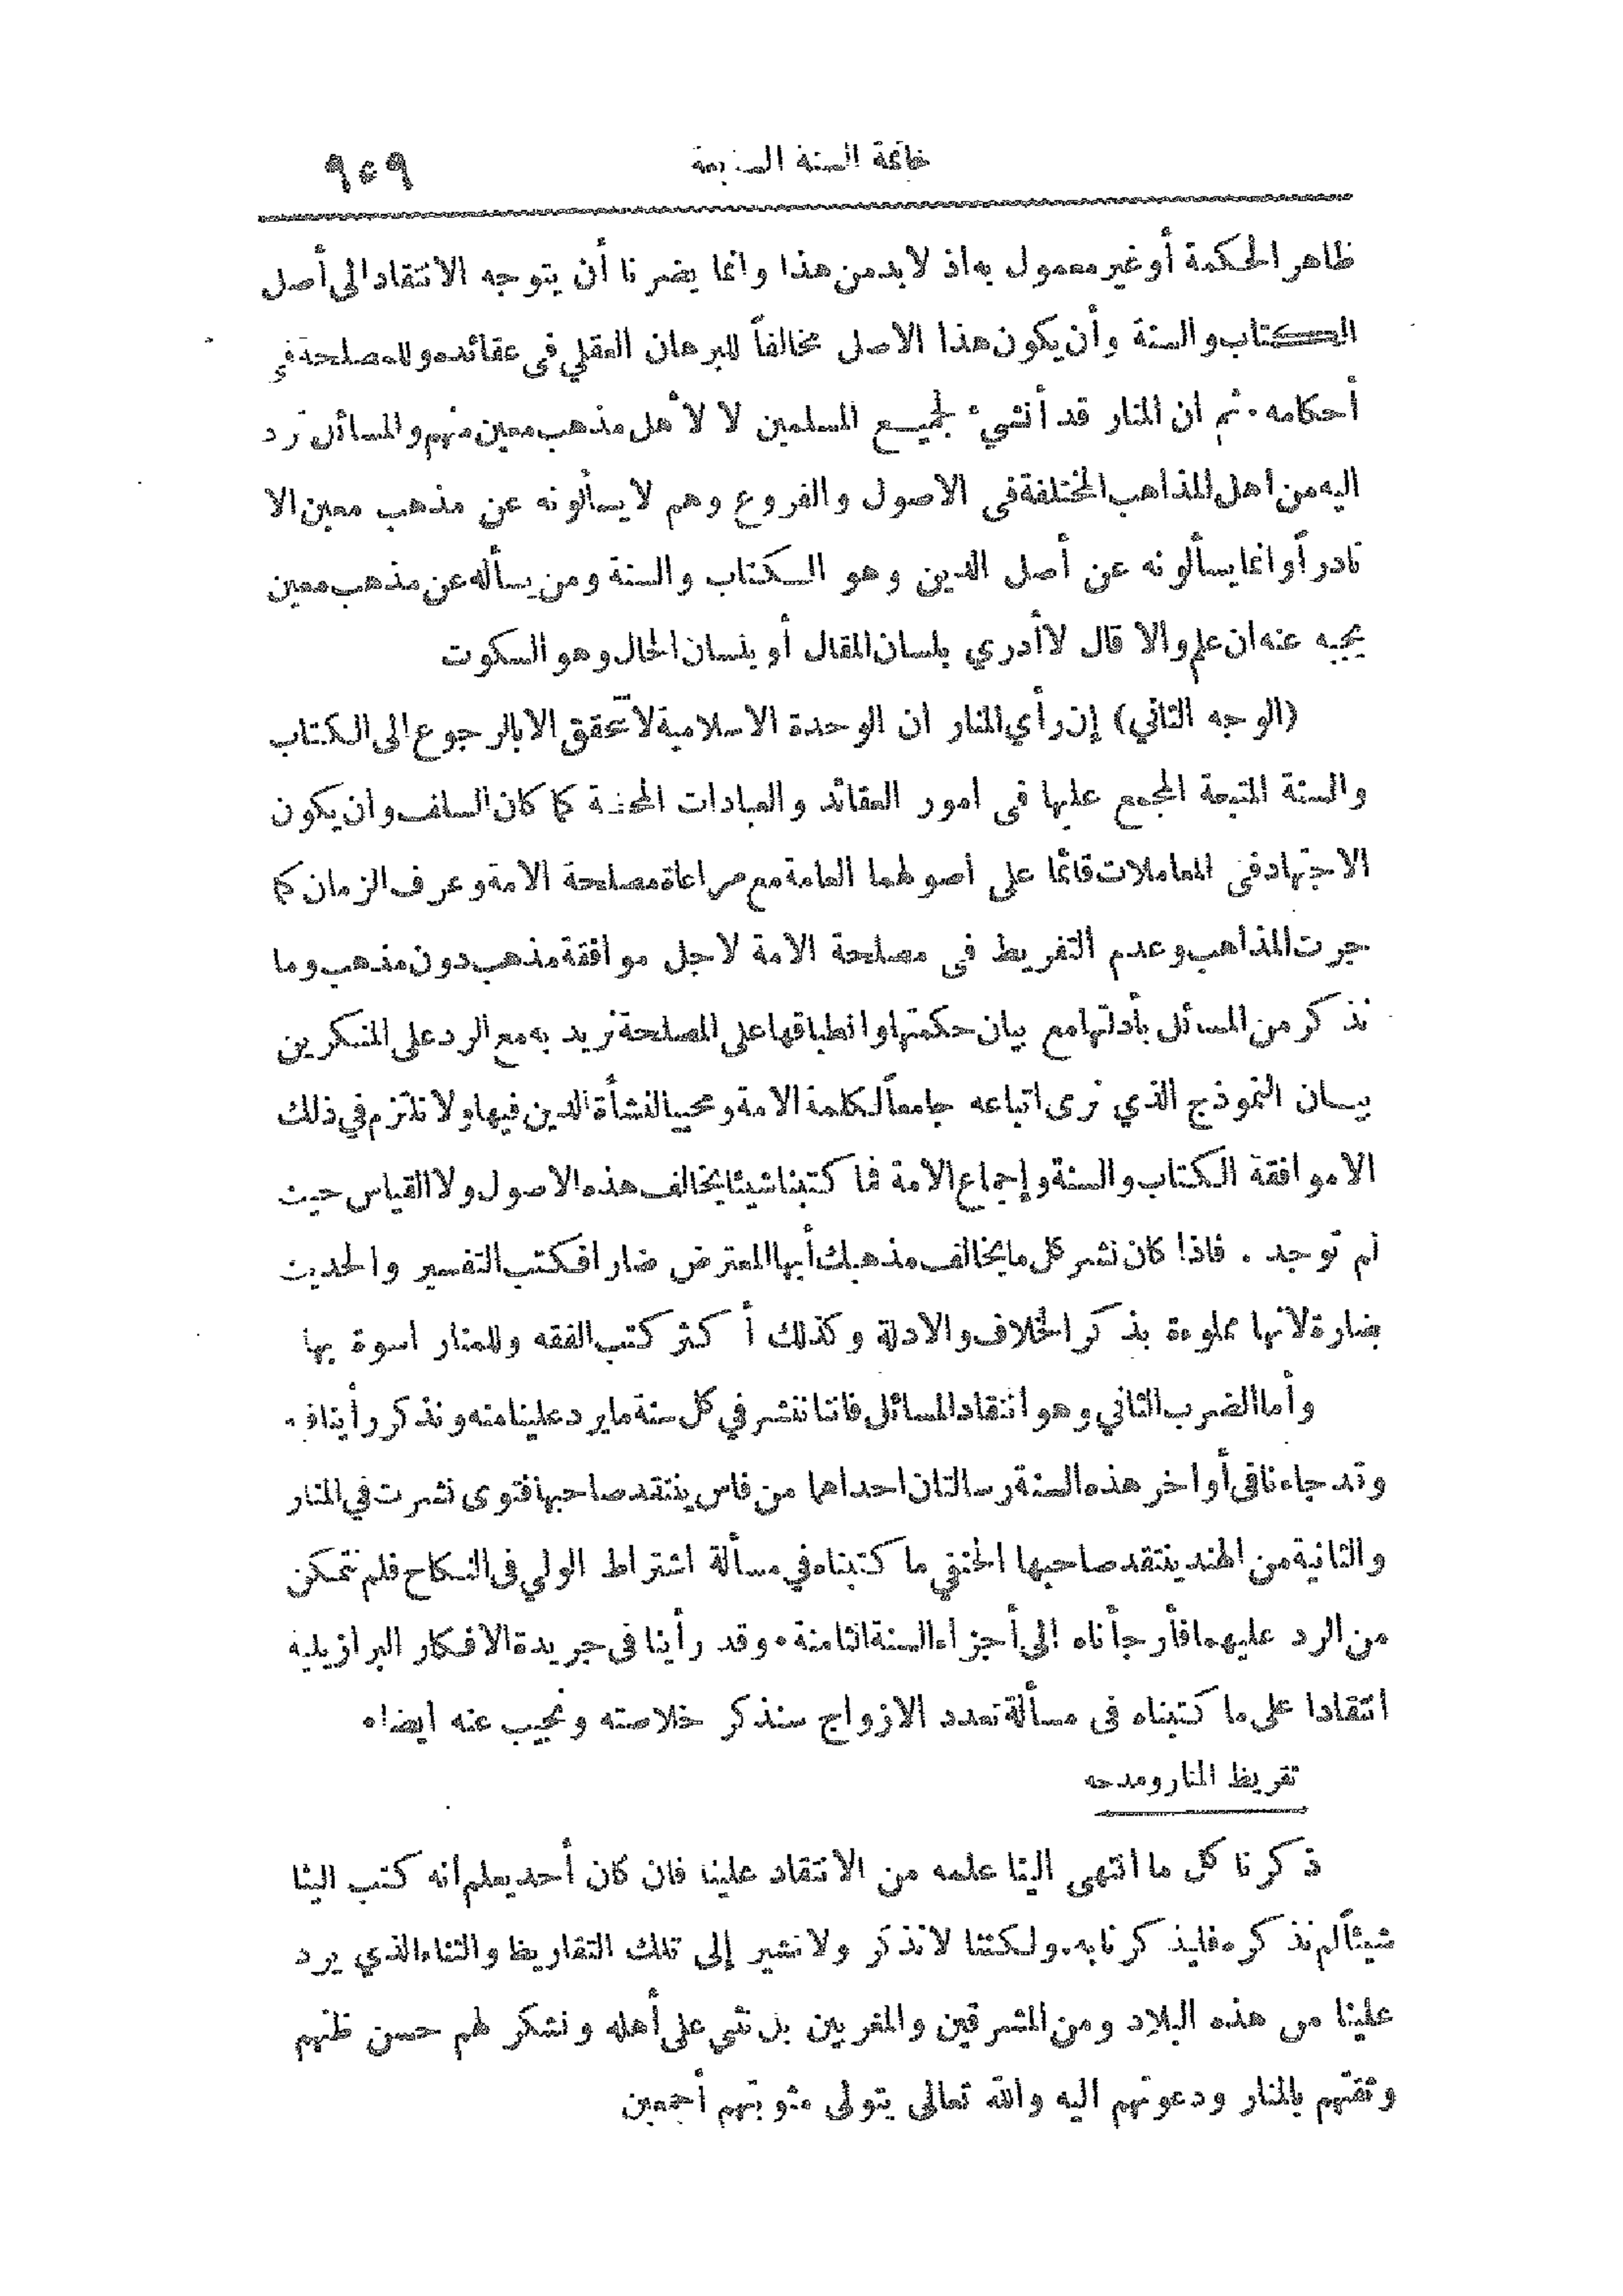 خاتمة السنة السابعة ٩٤٩
ظاهر الحكمة أو غير معمول به اذ لا بد من هذا وانما يضرنا أن يتوجه الانتقاد الى أصل
الكتاب والسنة وأن يكون هذا الاصل مخالفاً للبرهان العقلي في عقائده وللمصلحة في
أحكامه · ثم ان المنار قد أنشئ لجميع المسلمين لا لأهل مذهب معين منهم والمسائل ترد
اليه من اهل المذاهب المختلفة في الاصول والفروع وهم لا يسألونه عن مذهب معين الا
نادراً وانما يسألونه عن أصل الدين وهو الكتاب والسنة ومن يسأله عن مذهب معين
يجيبه عنه ان علم والا قال لا أدري بلسان المقال أو بلسان الحال وهو السكوت
(الوجه الثاني) إن رأي المنار ان الوحدة الاسلامية لا تتحقق الا بالرجوع الى الكتاب
والسنة المتبعة المجمع عليها في امور العقائد والعبادات المحضة كما كان السلف وان يكون
الاجتهاد في المعاملات قائمًا على أصولهما العامة مع مراعاة مصلحة الامة وعرف الزمان كما
جرت المذاهب وعدم التفريط في مصلحة الامة لاجل موافقة مذهب دون مذهب وما
نذكر من المسائل بأدلتها مع بيان حكمتها وانطباقها على المصلحة نريد به مع الرد على المنكرين
بيان النموذج الذي نرى اتباعه جامعاً لكلمة الامة ومحييا لنشأة الدين فيها ولا نلتزم في ذلك
الا موافقة الكتاب والسنة وإجماع الامة فما كتبنا شيئا يخالف هذه الاصول ولا القياس حيث
لم توجد . فاذا كان نشر كل ما يخالف مذهبك أيها المعترض ضارا فكتب التفسير والحديث
ضارة لانها مملوءة بذكر الخلاف والادلة وكذلك أكثر كتب الفقه وللمنار اسوة بها
وأما الضرب الثاني وهو انتقاد المسائل فاننا ننشر في كل سنة ما يرد علينا منه ونذكر رأينا فيه
وقد جاءنا في أواخر هذه السنة رسالتان احداهما من فاس ينتقد صاحبها فتوى نشرت في المنار
والثانية من الهند ينتقد صاحبها الحنفي ما كتبناه في مسألة اشتراط الولي في النكاح فلم نتمكن
من الرد عليهما فأرجأناه الى أجزاء السنة الثامنة · وقد رأينا في جريدة الافكار البرازيلية
انتقادا على ما كتبناه في مسألة تعدد الازواج سنذكر خلاصته ونجيب عنه ايضا ·
تقريظ المنار ومدحه
ذكرنا كل ما انتهى الينا علمه من الانتقاد علينا فان كان أحد يعلم أنه كتب الينا
شيئاً لم نذكره فليذكرنا به · ولكننا لا نذكر ولا نشير إلى تلك التقاريظ والثناء الذي يرد
علينا من هذه البلاد ومن المشرقين والمغربين بل نثني على أهله ونشكر لهم حسن ظنهم
وثقتهم بالمنار ودعوتهم اليه والله تعالى يتولى مثوبتهم أجمعين